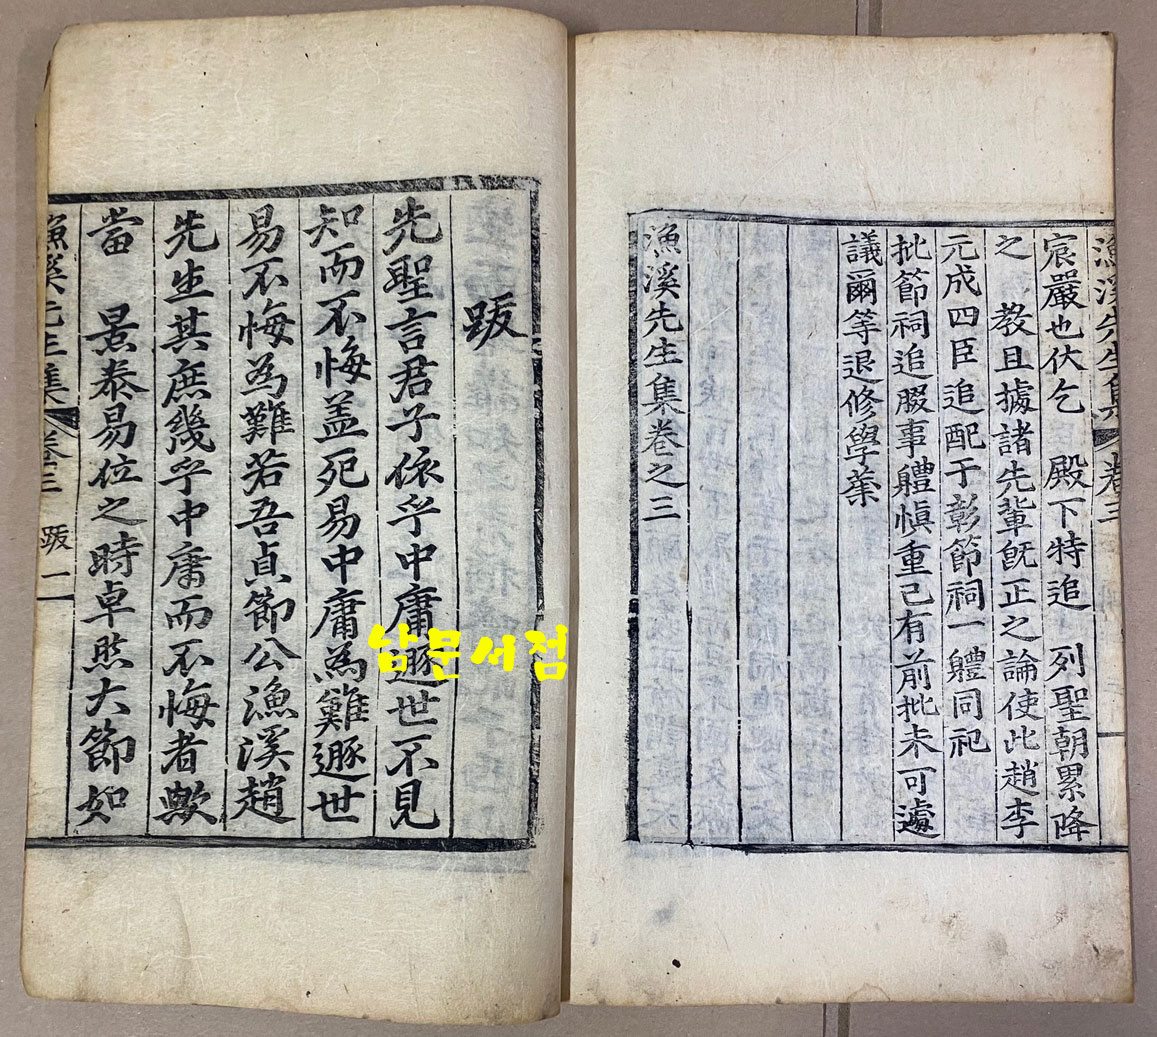 漁溪先生集 卷三
宸嚴也伏乞 殿下特追 列聖朝累降
之 教且據諸先輩旣正之論使此趙李
元成四臣追配于彰節祠一軆同祀
批節祠追腏事軆愼重已有前批未可遽
議爾等退修學業
漁溪先生集卷之三
跋
先聖言君子依乎中庸遯世不見
知而不悔盖死易中庸為難遯世
易不悔為難若吾貞節公漁溪趙
先生其庶幾乎中庸而不悔者歟
當 景泰易位之時卓然大節如
漁溪先生集 卷三 跋 一
남문서점